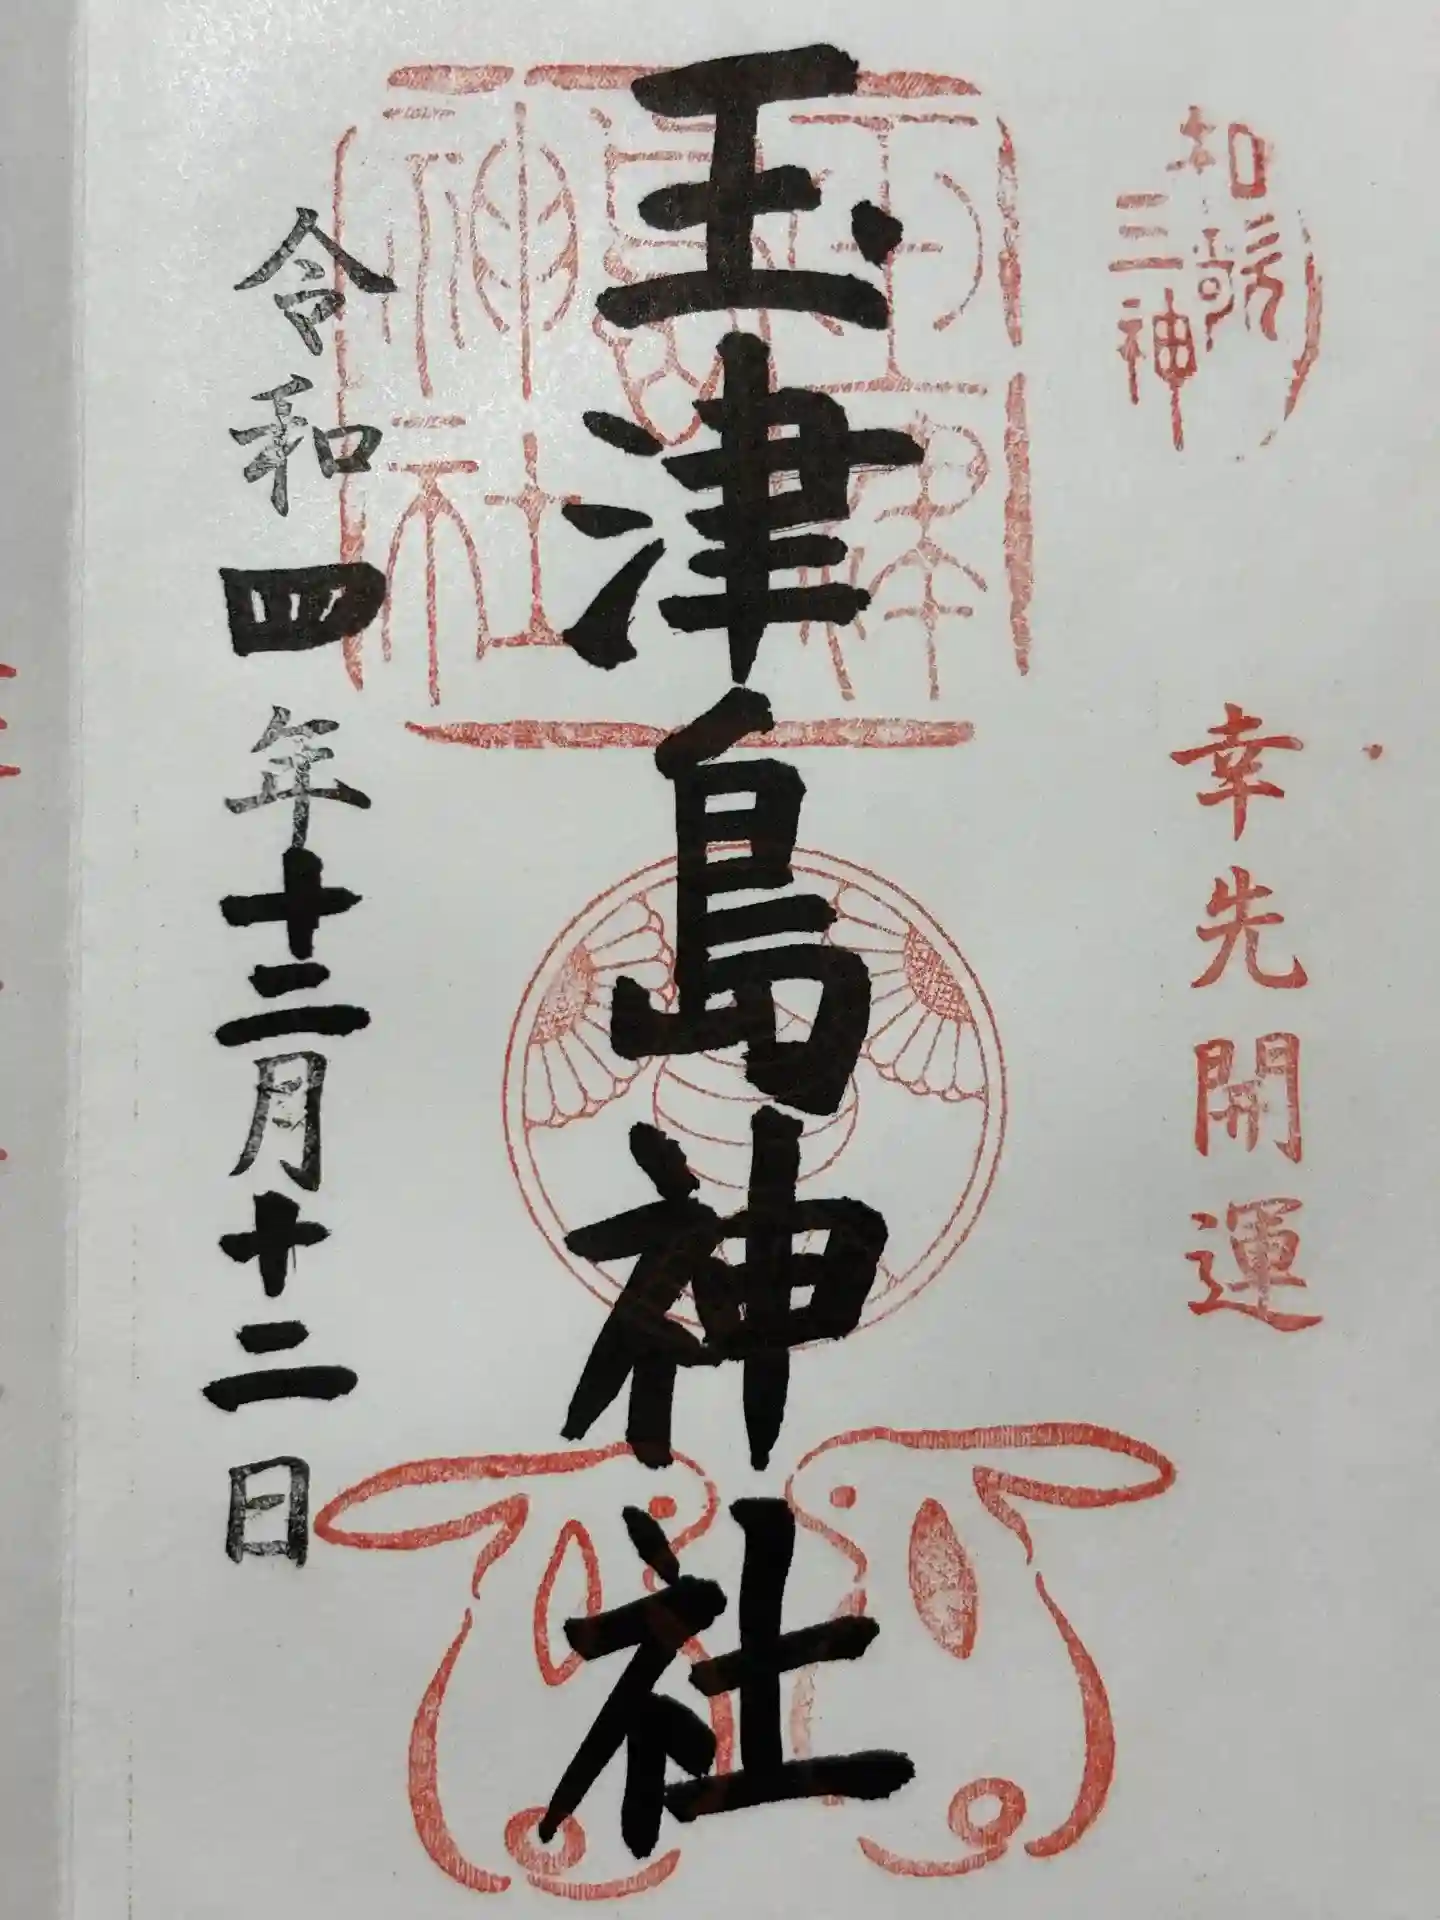 和歌
三神
幸先開運
玉津島神社
玉津
島
神社
令和四年十二月十二日